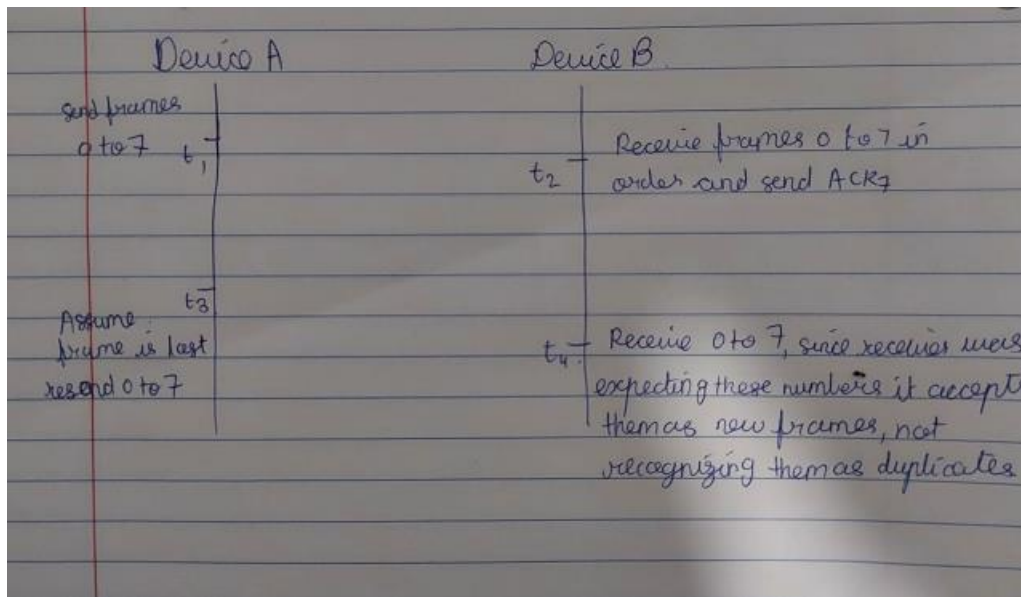 Device A
Device B.
send frames
0 to 7
t1
Receive frames 0 to 7 in
order and send ACK7
t2
t3
Assume
frame is last
resend 0 to 7
t4
Receive 0 to 7, since receiver was
expecting these numbers it accept
them as new frames, not
recognizing them as duplicates